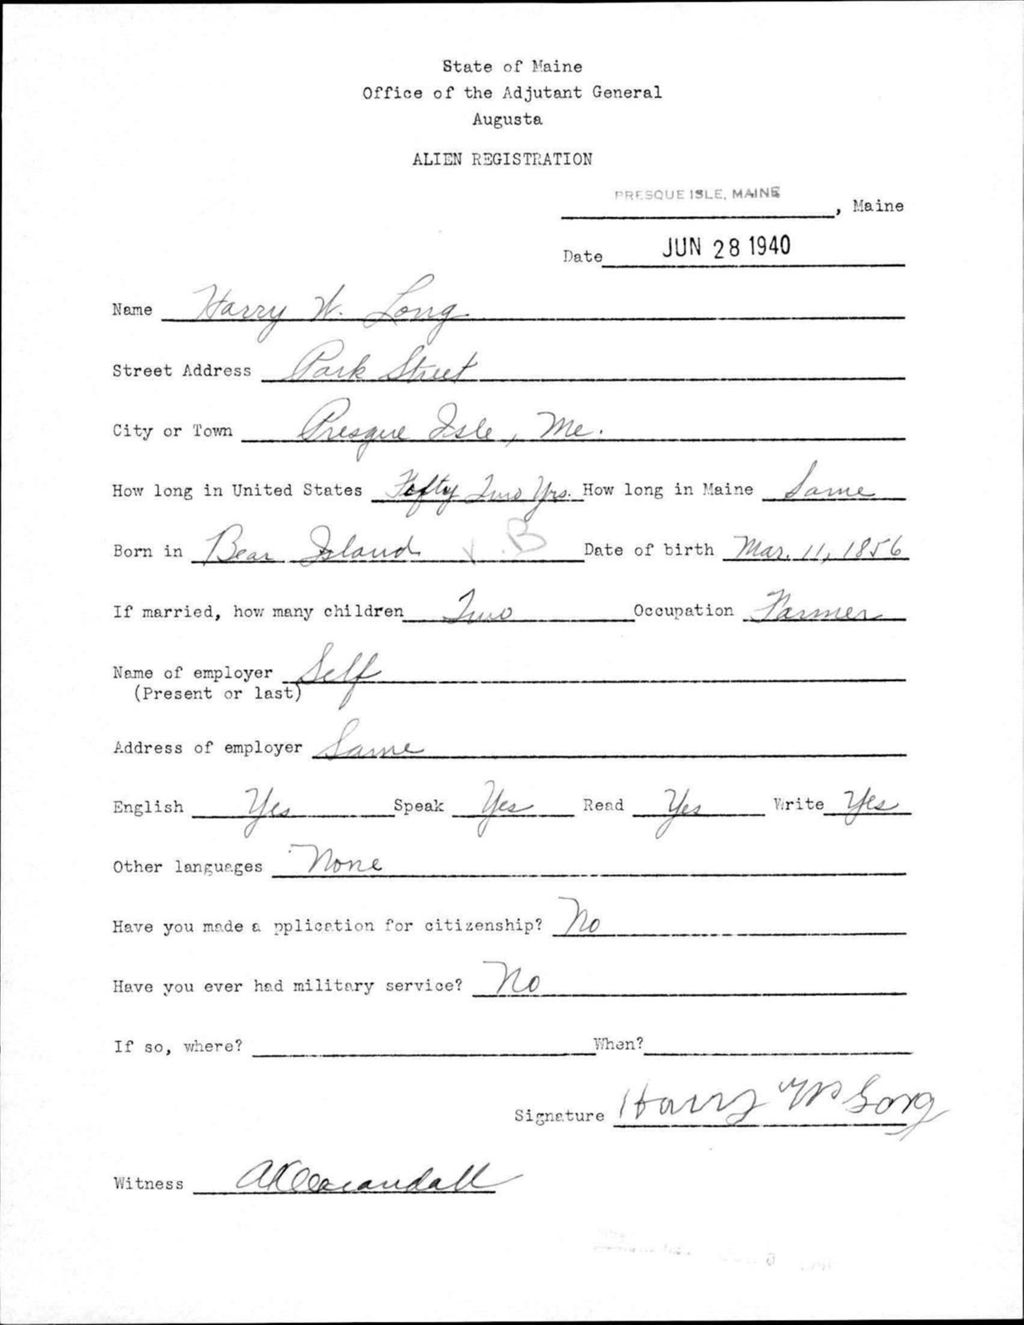 State of Maine
Office of the Adjutant General
Augusta
ALIEN REGISTRATION
PRESQUE ISLE, MAINE , Maine
Date JUN 28 1940
Name Harry W. Long
Street Address Park Street
City or Town Presque Isle, Me.
How long in United States Fifty Two Yrs. How long in Maine Same
Born in Bear Island N.B Date of birth Mar. 11, 1856
If married, how many children Two Occupation Farmer
Name of employer Self
(Present or last)
Address of employer Same
English Yes Speak Yes Read Yes Write Yes
Other languages None
Have you made a pplication for citizenship? No
Have you ever had military service? No
If so, where? When?
Signature Harry W Long
Witness